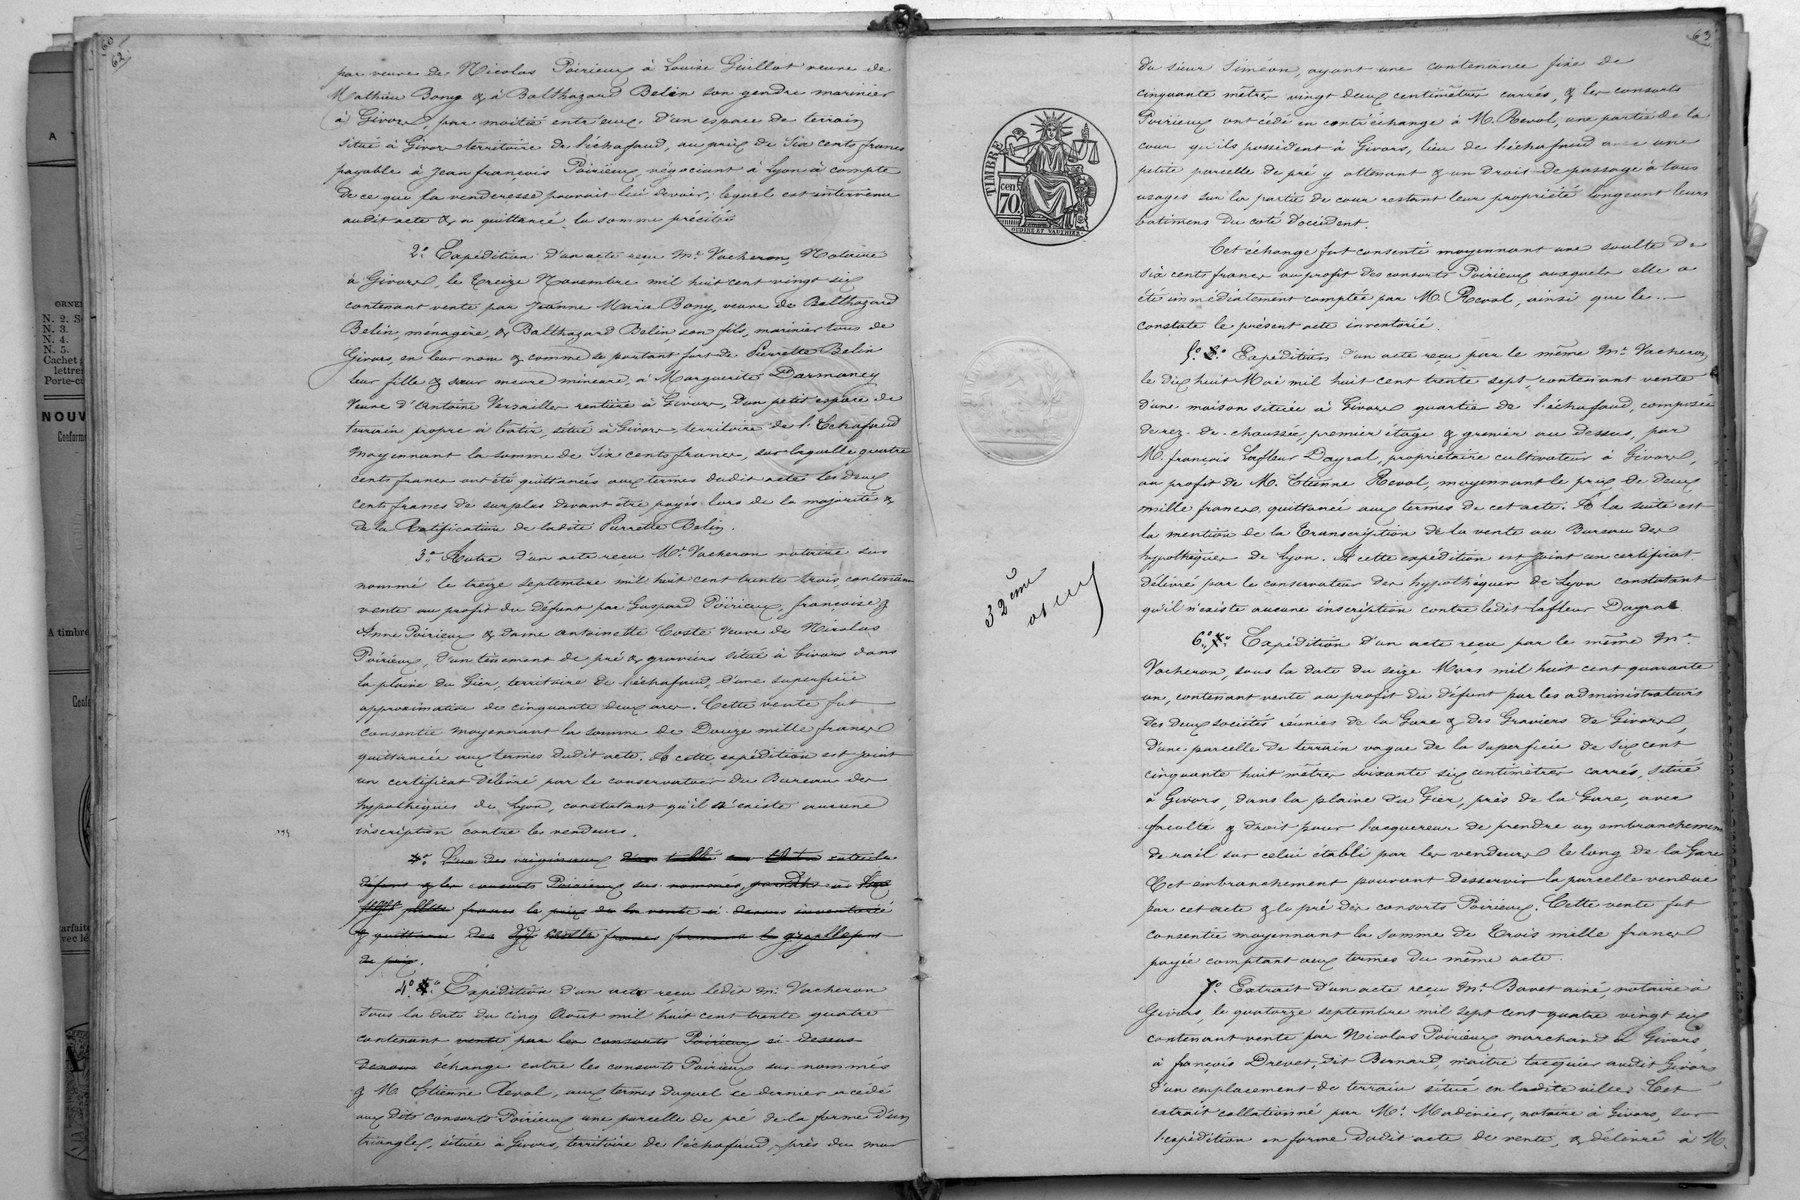 60
62
par veuve de Nicolas Poirieux à Louise Guillot veuve de
Mathieu Bony & à Balthazard Belin son gendre marinier
à Givors, par moitié entr'eux. d'un espace de terrain
situé à Givors territoire de l'échafaud, au prix de Six cents francs
payable à Jean françois Poirieux, négociant à Lyon à compte
de ce que la venderesse pouvait lui devoir, lequel est intervenu
audit acte & a quittancé la somme précitée
2° Expédition d'un acte reçu Mr. Vacheron, Notaire
à Givors, le Treize Novembre mil huit cent vingt six
contenant vente par Jeanne Marie Bony, veuve de Balthazard
Belin, ménagère, & Balthazard Belin, son fils, marinier tous de
Givors, en leur nom & comme se portant fort de Pierrette Belin
leur fille & sœur encore mineure, à Marguerite Darmancy
Veuve d'Antoine Versailles rentière à Givors, d'un petit espace de
terrain propre à batir, situé à Givors territoire de l'Echafaud
moyennant la somme de Six cents francs, sur laquelle quatre
cents francs ont été quittancés aux termes dudit acte les deux
cents francs de surplus devant être payés lors de la majorité &
de la Ratification de ladite Pierrette Belin.
3° Autre d'un acte reçu Mr. Vacheron notaire sus
nommé le treize septembre mil huit cent trente trois contenant
vente au profit du défunt par Gaspard Poirieux, françoise &
Anne Poirieux & dame antoinette Coste veuve de Nicolas
Poirieux, d'un tènement de pré & graviers situé à Givors dans
la plaine du Gier, territoire de l'échafaud, d'une superficie
approximative de cinquante deux ares. Cette vente fut
consentie moyennant la somme de Douze mille francs
quittancée aux termes dudit acte. A cette expédition est joint
un certificat délivré par le conservateur du Bureau des
hypothèques de Lyon, constatant qu'il n'existe aucune
inscription contre les vendeurs.
4° L'un des originaux entre le
défunt & les consorts Poirieux sus nommés,
francs le prix de la vente ci dessus inventorié
& quittance des francs
du prix.
4° Expédition d'un acte reçu ledit Mr. Vacheron
sous la date du cinq Août mil huit cent trente quatre
contenant vente par les consorts Poirieux ci dessus
échange entre les consorts Poirieux sus nommés
& M. Etienne Revol, aux termes duquel ce dernier a cédé
aux dits consorts Poirieux une parcelle de pré de la forme d'un
triangle, située à Givors, territoire de l'échafaud, près du mur
63
TIMBRE
cen. 70
32ème
du sieur Siméon, ayant une contenance fixe de
cinquante mètres vingt deux centimètres carrés, & les consorts
Poirieux ont cédé en contréchange à M. Revol, une partie de la
cour qu'ils possèdent à Givors, lieu de l'échafaud avec une
petite parcelle de pré y attenant & un droit de passage à tous
usages sur la partie de cour restant leur propriété longeant leurs
batimens du coté d'occident.
Cet échange fut consenti moyennant une soulte de
six cents francs au profit des consorts Poirieux auxquels elle a
été immédiatement comptée par M. Revol, ainsi que le
constate le présent acte inventorié.
5° Expédition d'un acte reçu par le même Mr. Vacheron,
le dix huit Mai mil huit cent trente sept, contenant vente
d'une maison située à Givors quartier de l'échafaud, composée
de rez-de-chaussée, premier étage & grenier au dessus, par
M. françois Lafleur Dayral, propriétaire cultivateur à Givors,
au profit de M. Etienne Revol, moyennant le prix de deux
mille francs, quittancé aux termes de cet acte. A la suite est
la mention de la Transcription de la vente au Bureau des
hypothèques de Lyon. A cette expédition est joint un certificat
délivré par le conservateur des hypothèques de Lyon constatant
qu'il n'existe aucune inscription contre ledit Lafleur Dayral
6° Expédition d'un acte reçu par le même Mr
Vacheron, sous la date du seize Mars mil huit cent quarante
un, contenant vente au profit du défunt par les administrateurs
des deux sociétés réunies de la Gare & des Graviers de Givors,
d'une parcelle de terrain vague de la superficie de six cent
cinquante huit mètres soixante six centimètres carrés, située
à Givors, dans la plaine du Gier, près de la Gare, avec
faculté & droit pour l'acquéreur de prendre un embranchement
de rail sur celui établi par les vendeurs le long de la Gare
Cet embranchement pouvant desservir la parcelle vendue
par cet acte & le pré des consorts Poirieux. Cette vente fut
consentie moyennant la somme de Trois mille francs
payée comptant aux termes du même acte.
7° Extrait d'un acte reçu Mr. Bavet ainé, notaire à
Givors, le quatorze septembre mil sept cent quatre vingt six
contenant vente par Nicolas Poirieux marchand à Givors
à françois Drevet, dit Bernard, maitre audit Givors
d'un emplacement de terrain situé en ladite ville. Cet
extrait collationné par Mr. Madinier, notaire à Givors, sur
l'expédition en forme dudit acte de vente, & délivré à M.
A
ORNE
N. 2. S
N. 3.
N. 4.
N. 5.
Cachet
lettre
Porte-c
NOUV
Conforme
A timbre
Confo
Parfaite
avec lé